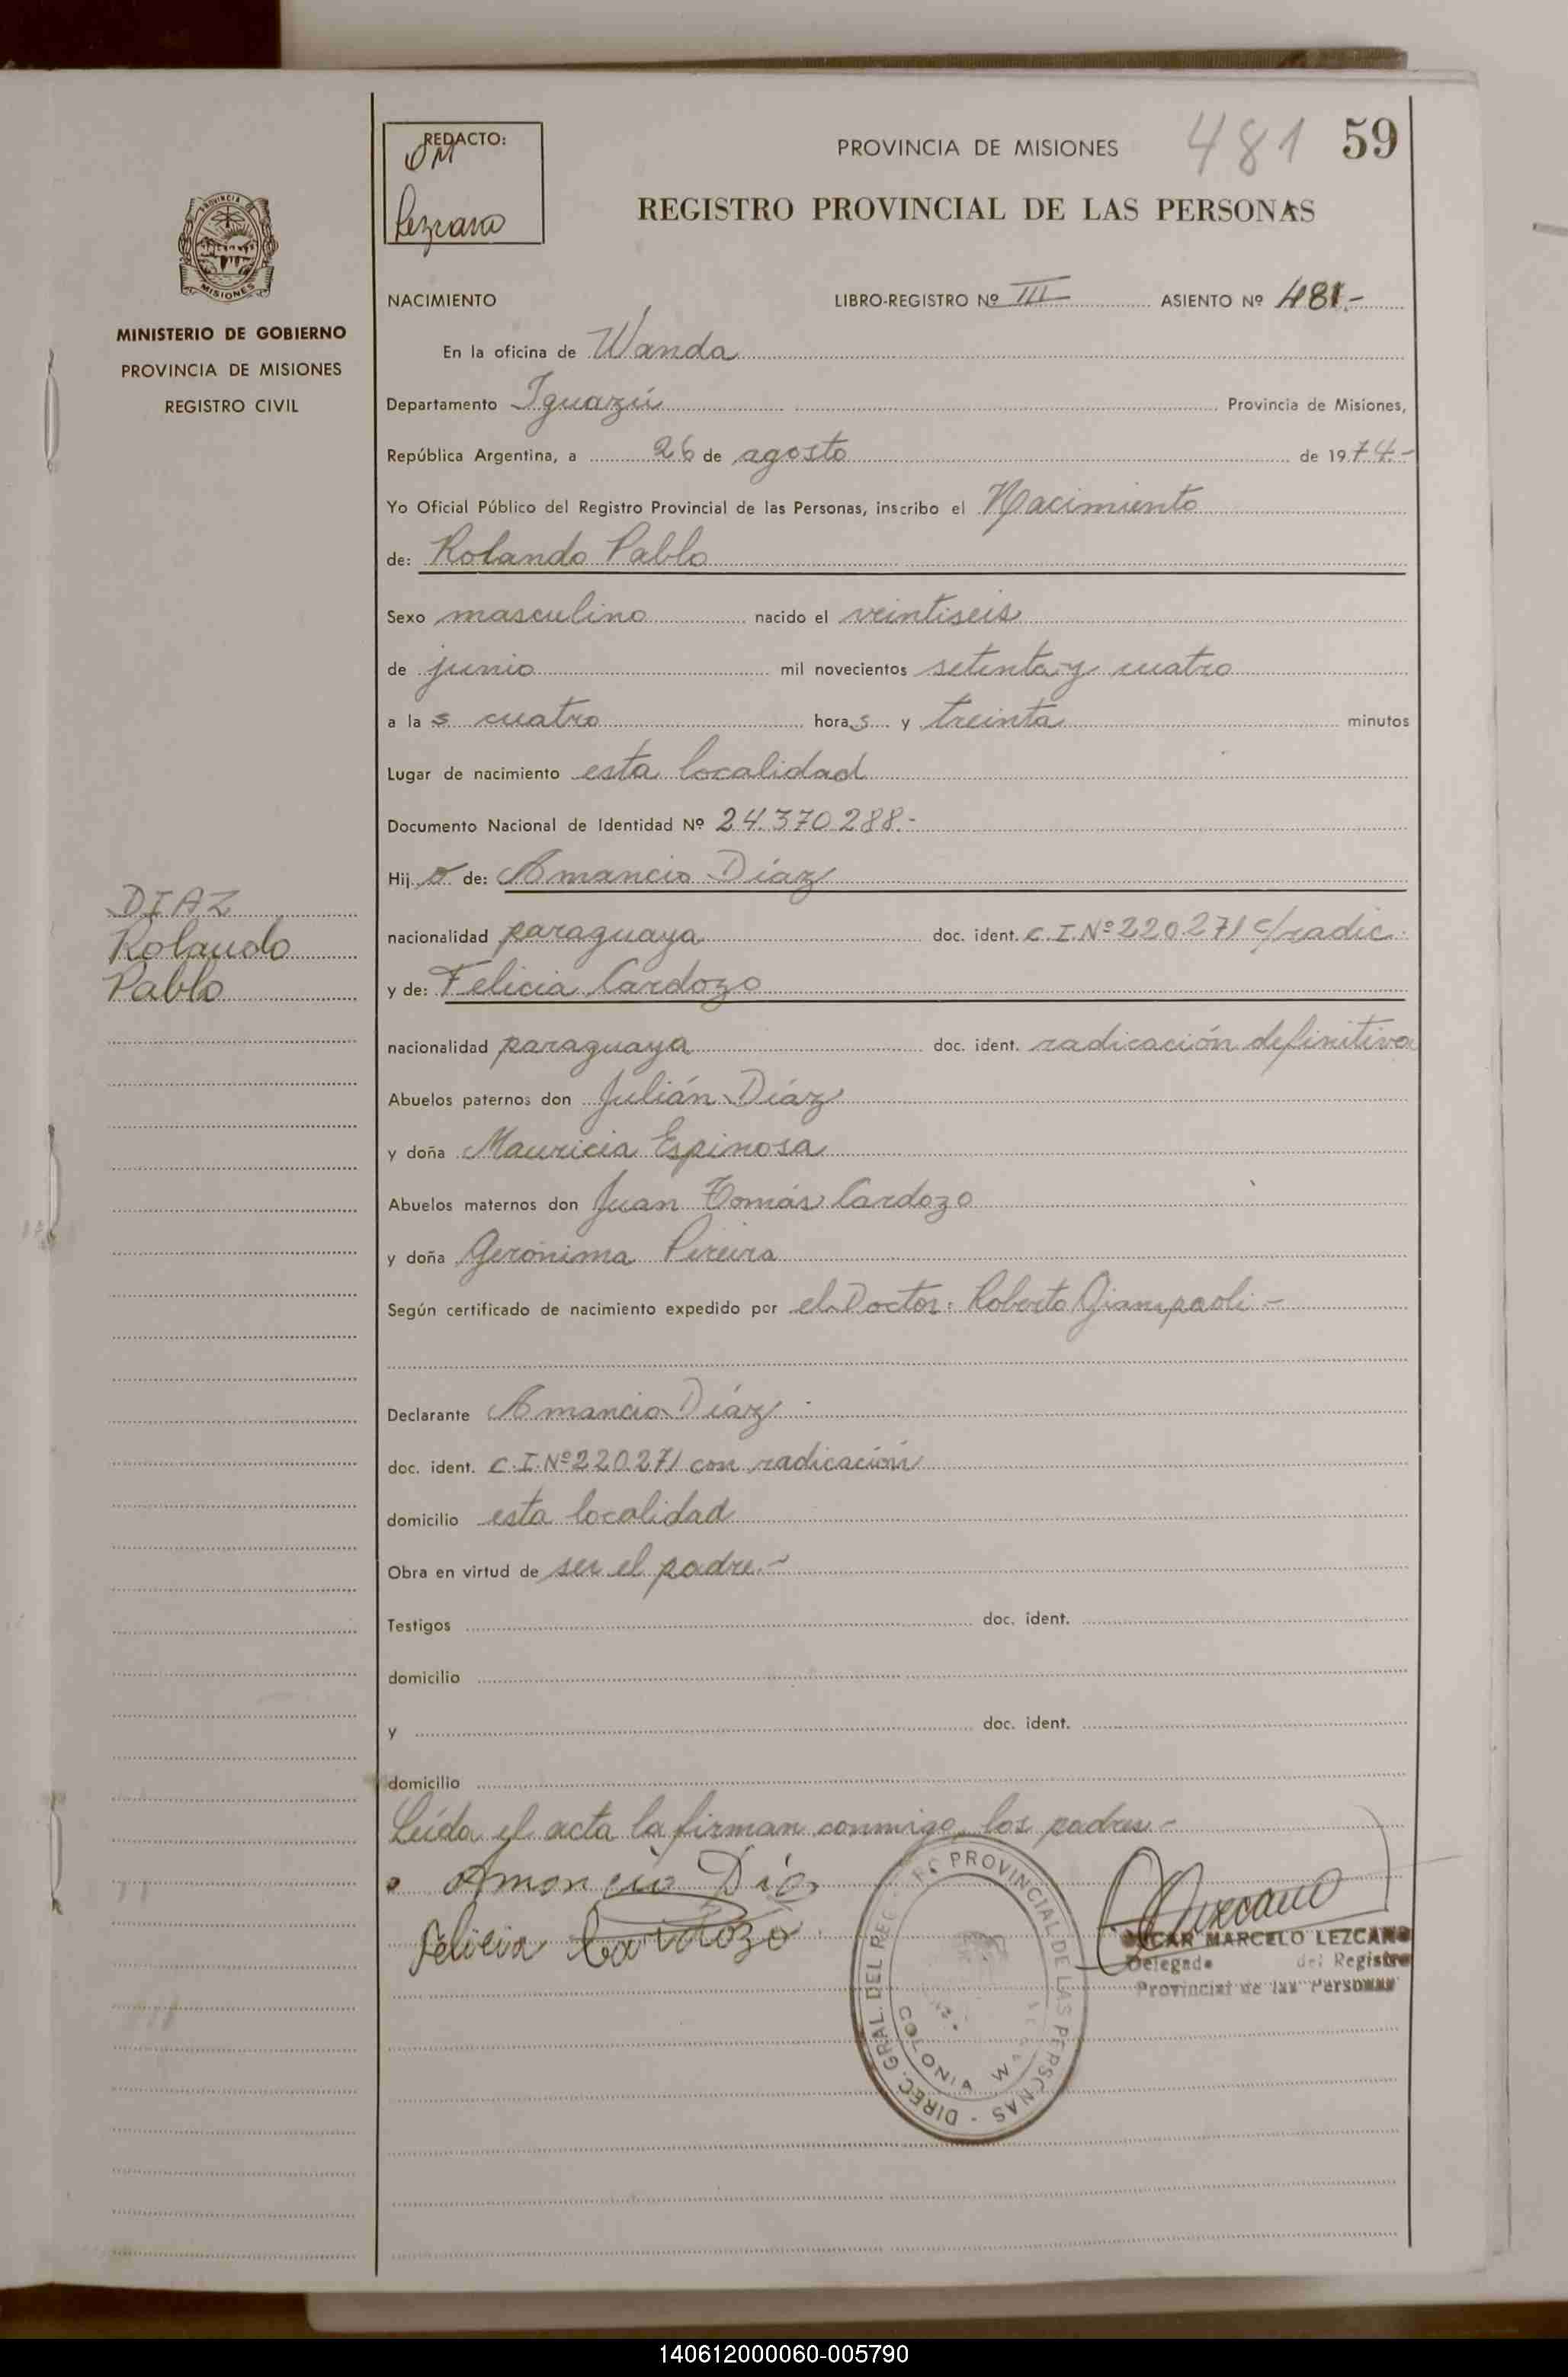 REDACTO:
OM
Lezcano
PROVINCIA DE MISIONES
481
59
REGISTRO PROVINCIAL DE LAS PERSONAS
PROVINCIA DE
MISIONES
MINISTERIO DE GOBIERNO
PROVINCIA DE MISIONES
REGISTRO CIVIL
NACIMIENTO LIBRO-REGISTRO Nº III ASIENTO Nº 481.-
En la oficina de Wanda
Departamento Iguazú Provincia de Misiones,
República Argentina, a 26 de agosto de 1974.-
Yo Oficial Público del Registro Provincial de las Personas, inscribo el Nacimiento
de: Rolando Pablo
Sexo masculino nacido el veintiseis
de junio mil novecientos setenta y cuatro
a las cuatro horas y treinta minutos
Lugar de nacimiento esta localidad
Documento Nacional de Identidad Nº 24.370.288.-
Hijo de: Amancio Díaz
DIAZ
Rolando
Pablo
nacionalidad paraguaya doc. ident. C.I.Nº 220.271 c/radic.
y de: Felicia Cardozo
nacionalidad paraguaya doc. ident. radicación definitiva
Abuelos paternos don Julián Díaz
y doña Mauricia Espinosa
Abuelos maternos don Juan Tomás Cardozo
y doña Gerónima Pereira
Según certificado de nacimiento expedido por el Doctor: Roberto Giampaoli -
Declarante Amancio Díaz
doc. ident. C.I.Nº 220.271 con radicación
domicilio esta localidad
Obra en virtud de ser el padre.-
Testigos doc. ident.
domicilio
y doc. ident.
domicilio
Leída el acta la firman conmigo, los padres.-
Amoncio Díaz
Felicia Cardozo
DIREC. GRAL. DEL REG. PROVINCIAL DE LAS PERSONAS
COLONIA
Lezcano
OSCAR MARCELO LEZCANO
Delegado del Registro
Provincial de las Personas
140612000060-005790